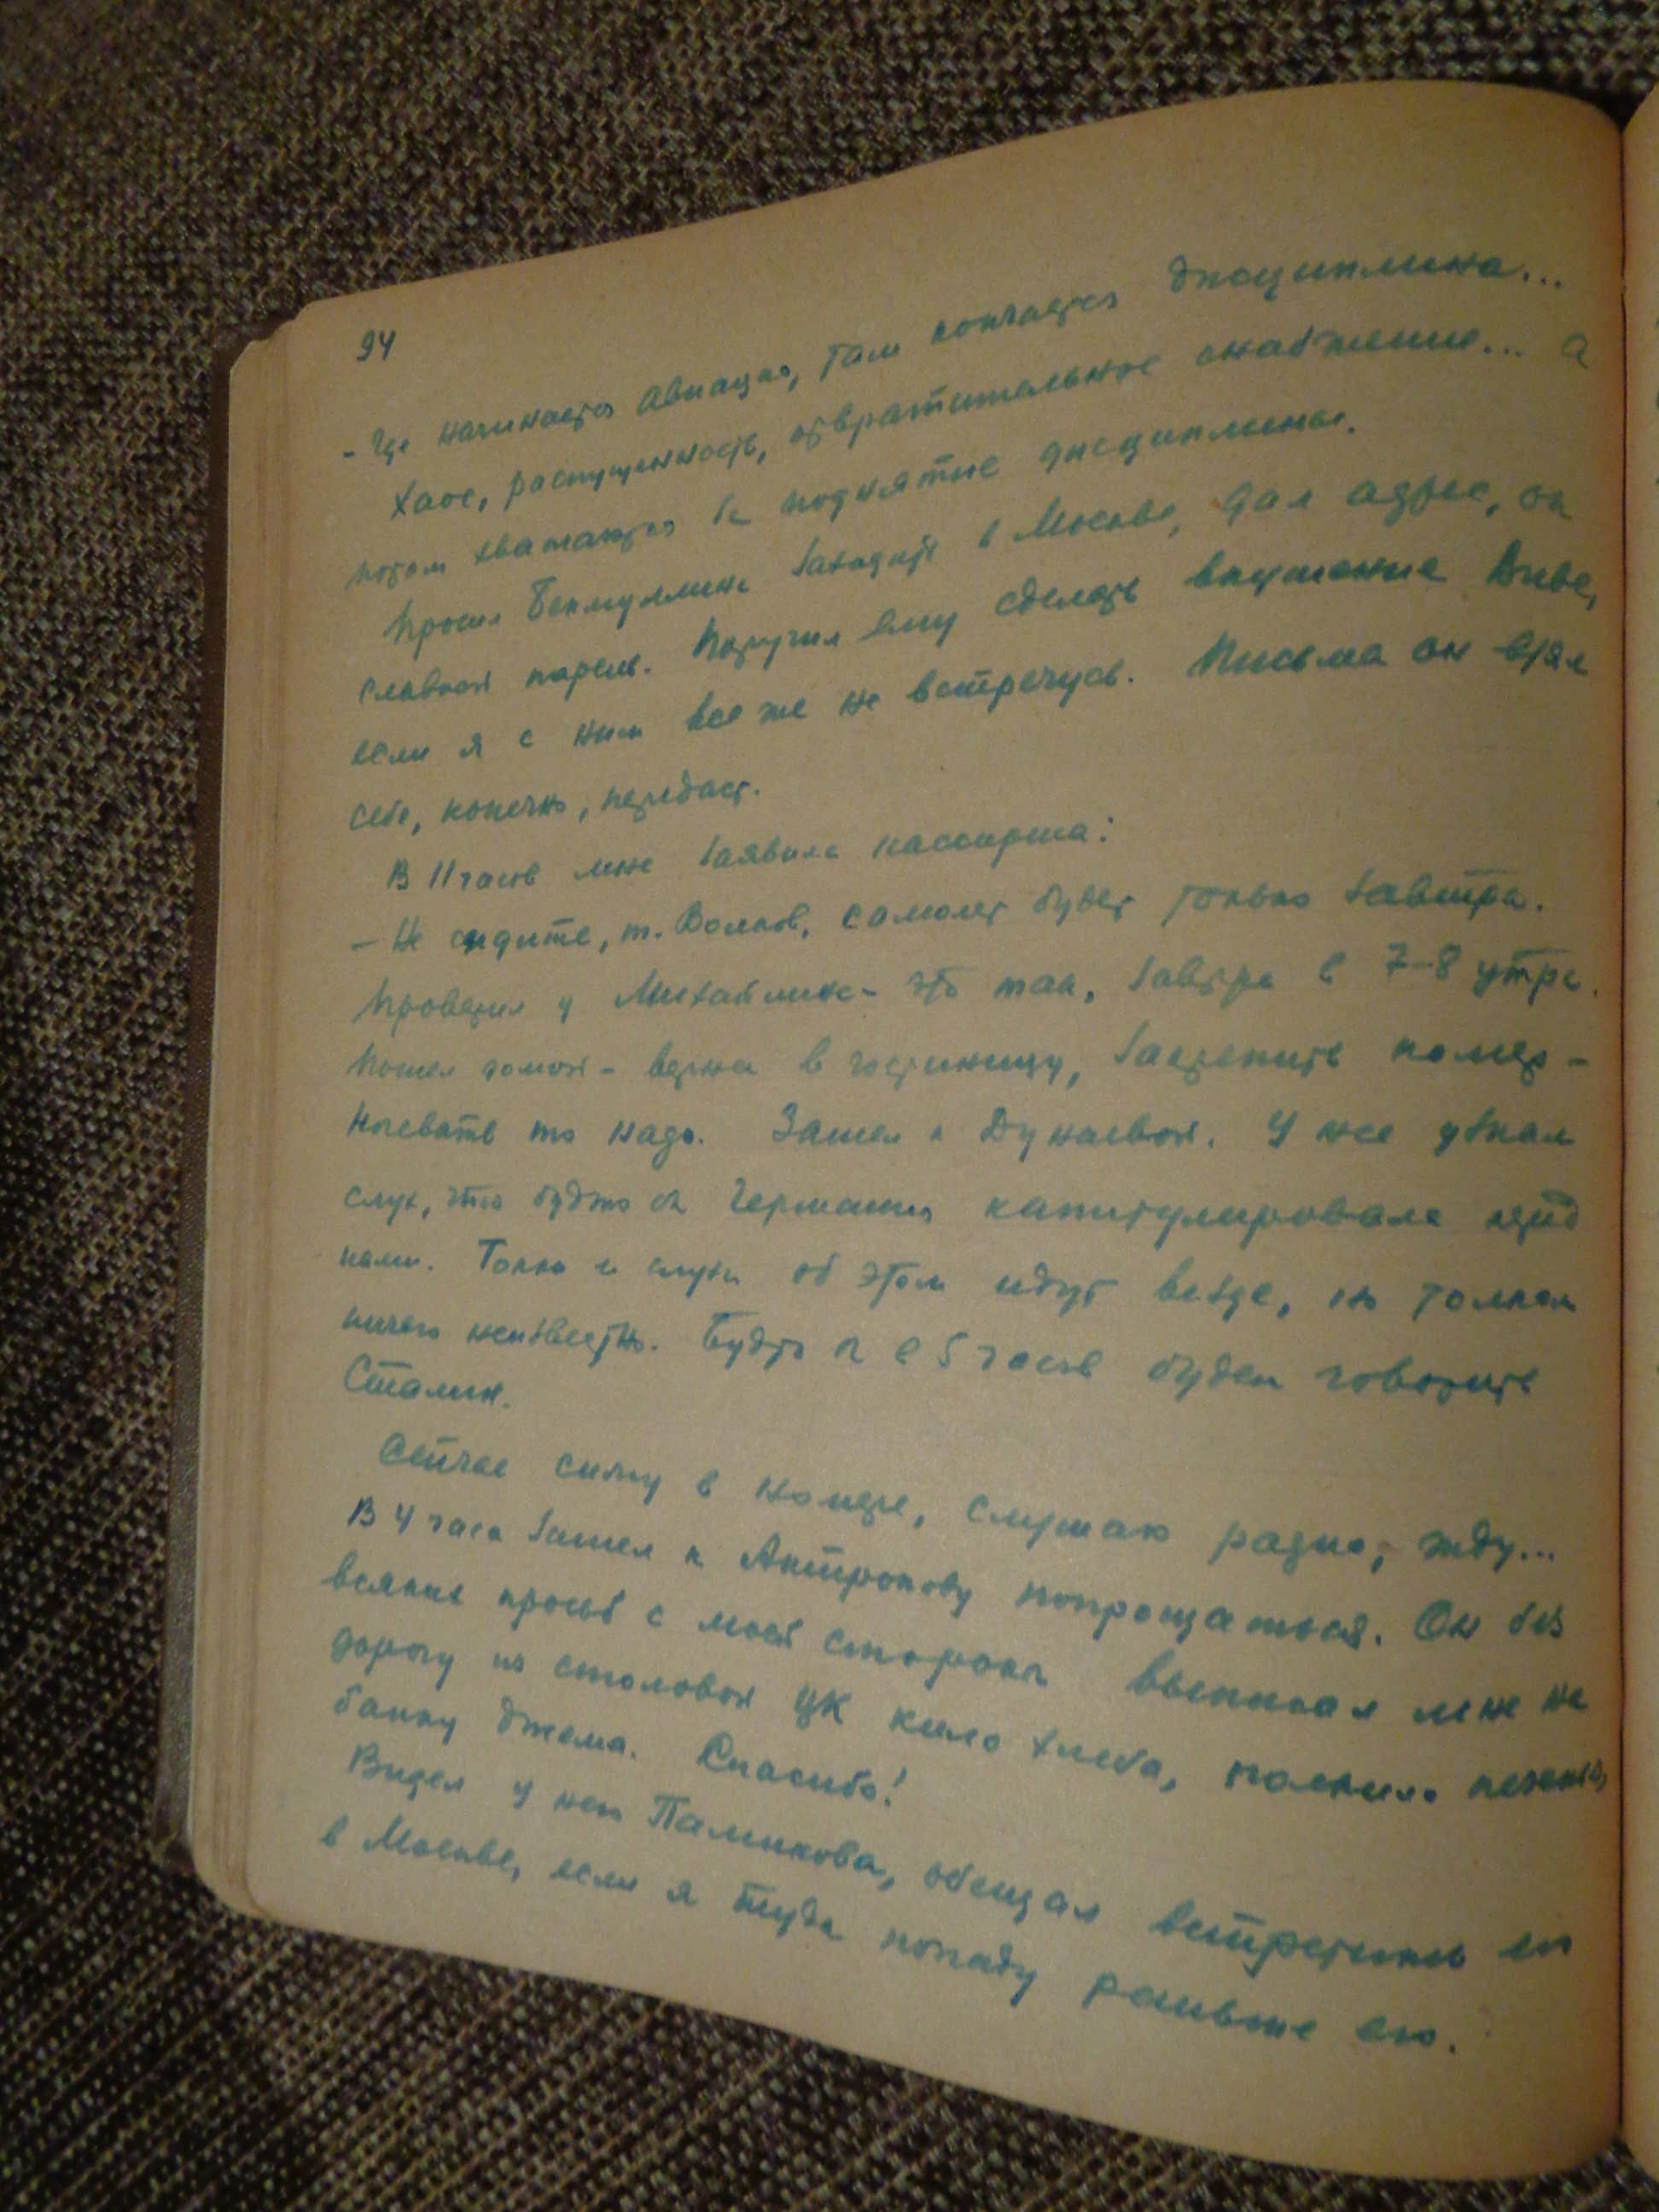 94
- Где начинается авиация, там кончается дисциплина...
Хаос, распущенность, отвратительное снабжение... а
потом хватаются за поднятие дисциплины.
Просил заходить в Москве, дал адрес, он
славной парень. Поручил ему сделать внушение Виве,
если я с ним все же не встречусь. Письма он взял
себе, конечно, передаст.
В 11 часов мне заявила кассирша:
- Не сидите, т. Волков, самолет будет только завтра.
Проверил у - это так, завтра в 7-8 утра.
Пошел домой - верней в гостиницу, закрепить номер -
ночевать то надо. Зашел к Дунаевой. У нее узнал
слух, что будто бы Германия капитулировала перед
нами. Толки и слухи об этом идут везде, но толком
ничего неизвестно. Будто бы в 5 часов будет говорить
Сталин.
Сейчас сижу в номере, слушаю радио, жду...
В 4 часа зашел к Антропову попрощаться. Он без
всяких просьб с моей стороны выписал мне на
дорогу из столовой ЦК кило хлеба, полкило печенья,
банку джема. Спасибо!
Видел у него Паликова, обещал встретить его
в Москве, если я туда попаду раньше его.